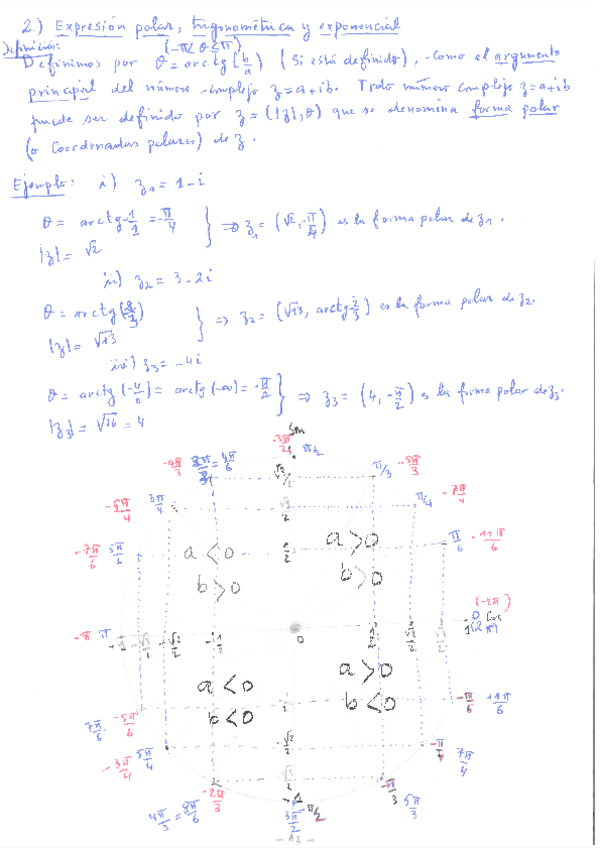 2.) Expresión polar, trigonométrica y exponencial
Definición: (-π<θ≤π)
Definimos por θ = arctg(b/a) (Si está definido), como el argumento
principal del número complejo z=a+ib. Todo número complejo z=a+ib
puede ser definido por z=(|z|,θ) que se denomina forma polar
(o Coordenadas polares) de z.
Ejemplo: i) z₁ = 1-i
θ = arctg -1/1 = -π/4 } ⇒ z₁ = (√2, -π/4) es la forma polar de z₁.
|z| = √2
ii) z₂ = 3-2i
} ⇒ z₂ = (√13, arctg
) es la forma polar de z₂.
|z| = √13
iii) z₃ = -4i
θ = arctg(-4/0) = arctg(-∞) = -π/2 } ⇒ z₃ = (4, -π/2) es la forma polar de z₃.
|z₃| = √16 = 4
Sen
-3π/2 π/2
-4π/3 = 4π/6 π/3 -5π/3
-5π/4 3π/4 √2/2 π/4 -7π/4
-7π/6 5π/6 1/2 π/6 -11π/6
a<0 a>0
b>0 b>0
(-2π)
-π π -1 -√3/2 -√2/2 -1/2 0 1/2 √2/2 √3/2 1 0 Cos
2π
a<0 a>0
b<0 b<0
7π/6 -5π/6 -π/6 11π/6
-3π/4 5π/4 -√2/2 -π/4 7π/4
-2π/3 -π/3 5π/3
4π/3 = 8π/6 -1 3π/2 -π/2
-12-